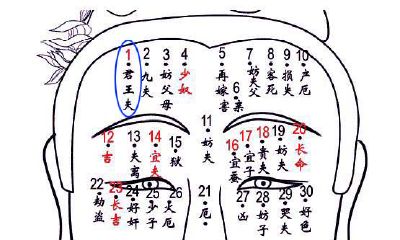 1 君王夫
2 九夫
3 妨父母
4 少奴
5 再嫁
6 害亲
7 妨夫父
8 客死
9 损夫
10 产厄
11 妨夫
12 吉
13 夫离
14 宜夫
15 狱
16 宜蚕
17 宜子
18 贵夫
19 妨夫
20 长命
21 厄
22 劫盗
23 长吉
24 好奸
25 少子
26 火厄
27 凶
28 妨子
29 哭夫
30 好色